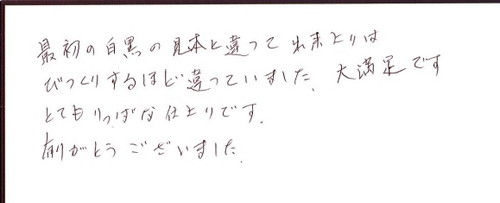 最初の白黒の見本と違って 出来上りは
びっくりするほど違っていました 大満足です
とてもりっぱな仕上りです.
有りがとうございました